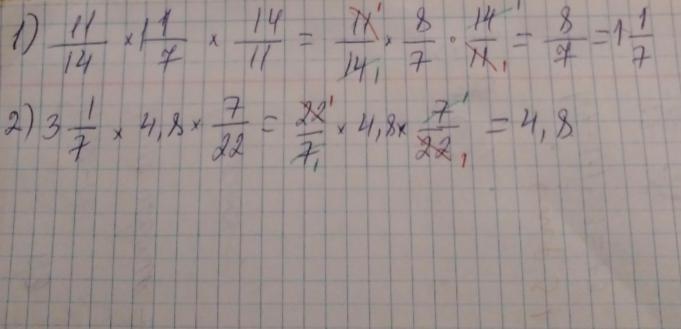 1) 11/14 × 1 1/7 × 14/11 = 11/14 × 8/7 · 14/11 = 8/7 = 1 1/7
2) 3 1/7 × 4,8 × 7/22 = 22/7 × 4,8 × 7/22 = 4,8